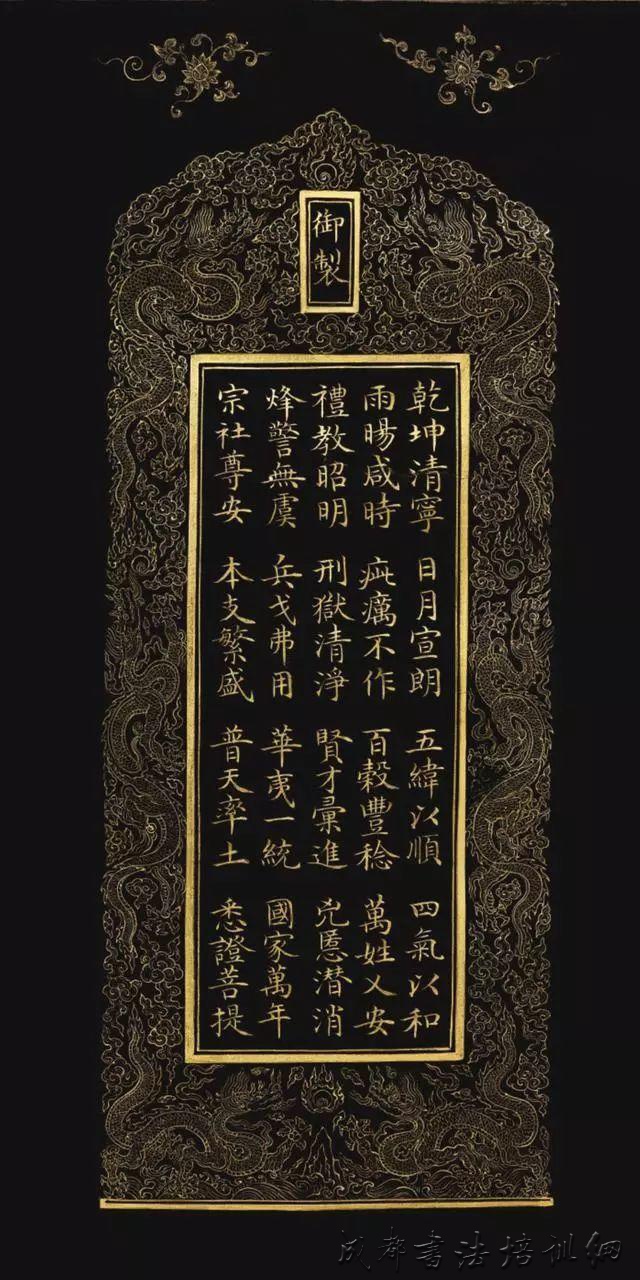 御製
乾坤清寧 日月宣朗 五緯以順 四氣以和
雨暘咸時 疵癘不作 百穀豐稔 萬姓乂安
禮教昭明 刑獄清淨 賢才彙進 兇慝潛消
烽警無虞 兵戈弗用 華夷一統 國家萬年
宗社尊安 本支繁盛 普天率土 悉證菩提
成都书法培训网